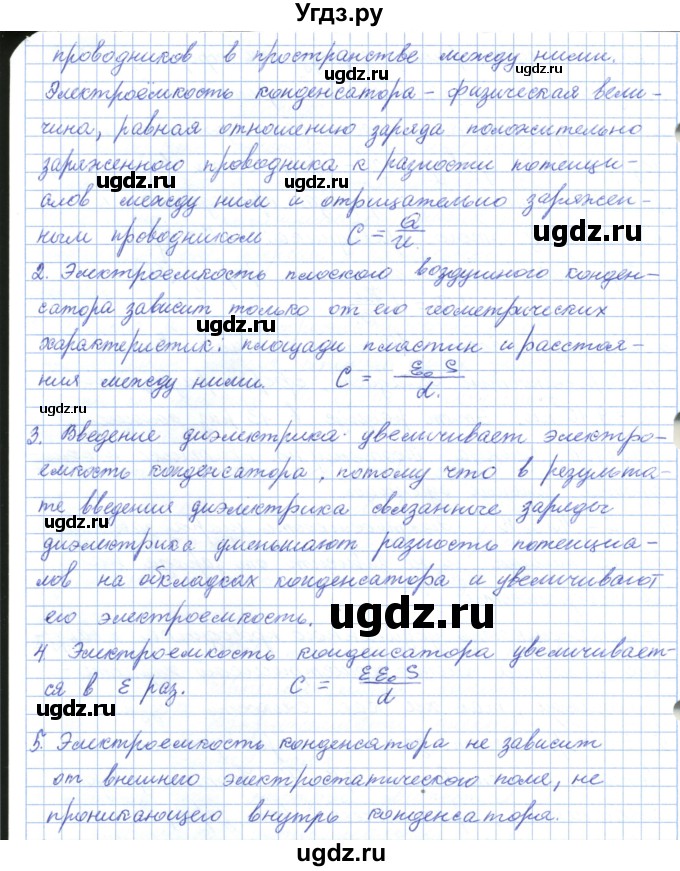 Угдз.ру
проводников в пространстве между ними.
Электроёмкость конденсатора - физическая вели-
чина, равная отношению заряда положительно
заряженного проводника к разности потенци-
алов между ним и отрицательно заряжен-
ным проводником C = Q/U.
2. Электроемкость плоского воздушного конден-
сатора зависит только от его геометрических
характеристик: площади пластин и расстоя-
ния между ними. C = ε₀ S/d.
3. Введение диэлектрика увеличивает электро-
емкость конденсатора, потому что в результа-
те введения диэлектрика связанные заряды
диэлектрика уменьшают разность потенциа-
лов на обкладках конденсатора и увеличивают
его электроемкость.
4. Электроемкость конденсатора увеличивает-
ся в ε раз. C = εε₀ S/d
5. Электроемкость конденсатора не зависит
от внешнего электростатического поля, не
проникающего внутрь конденсатора.
ugdz.ru
ugdz.ru
ugdz.ru
ugdz.ru
ugdz.ru
ugdz.ru
ugdz.ru
ugdz.ru
ugdz.ru
ugdz.ru
ugdz.ru
ugdz.ru